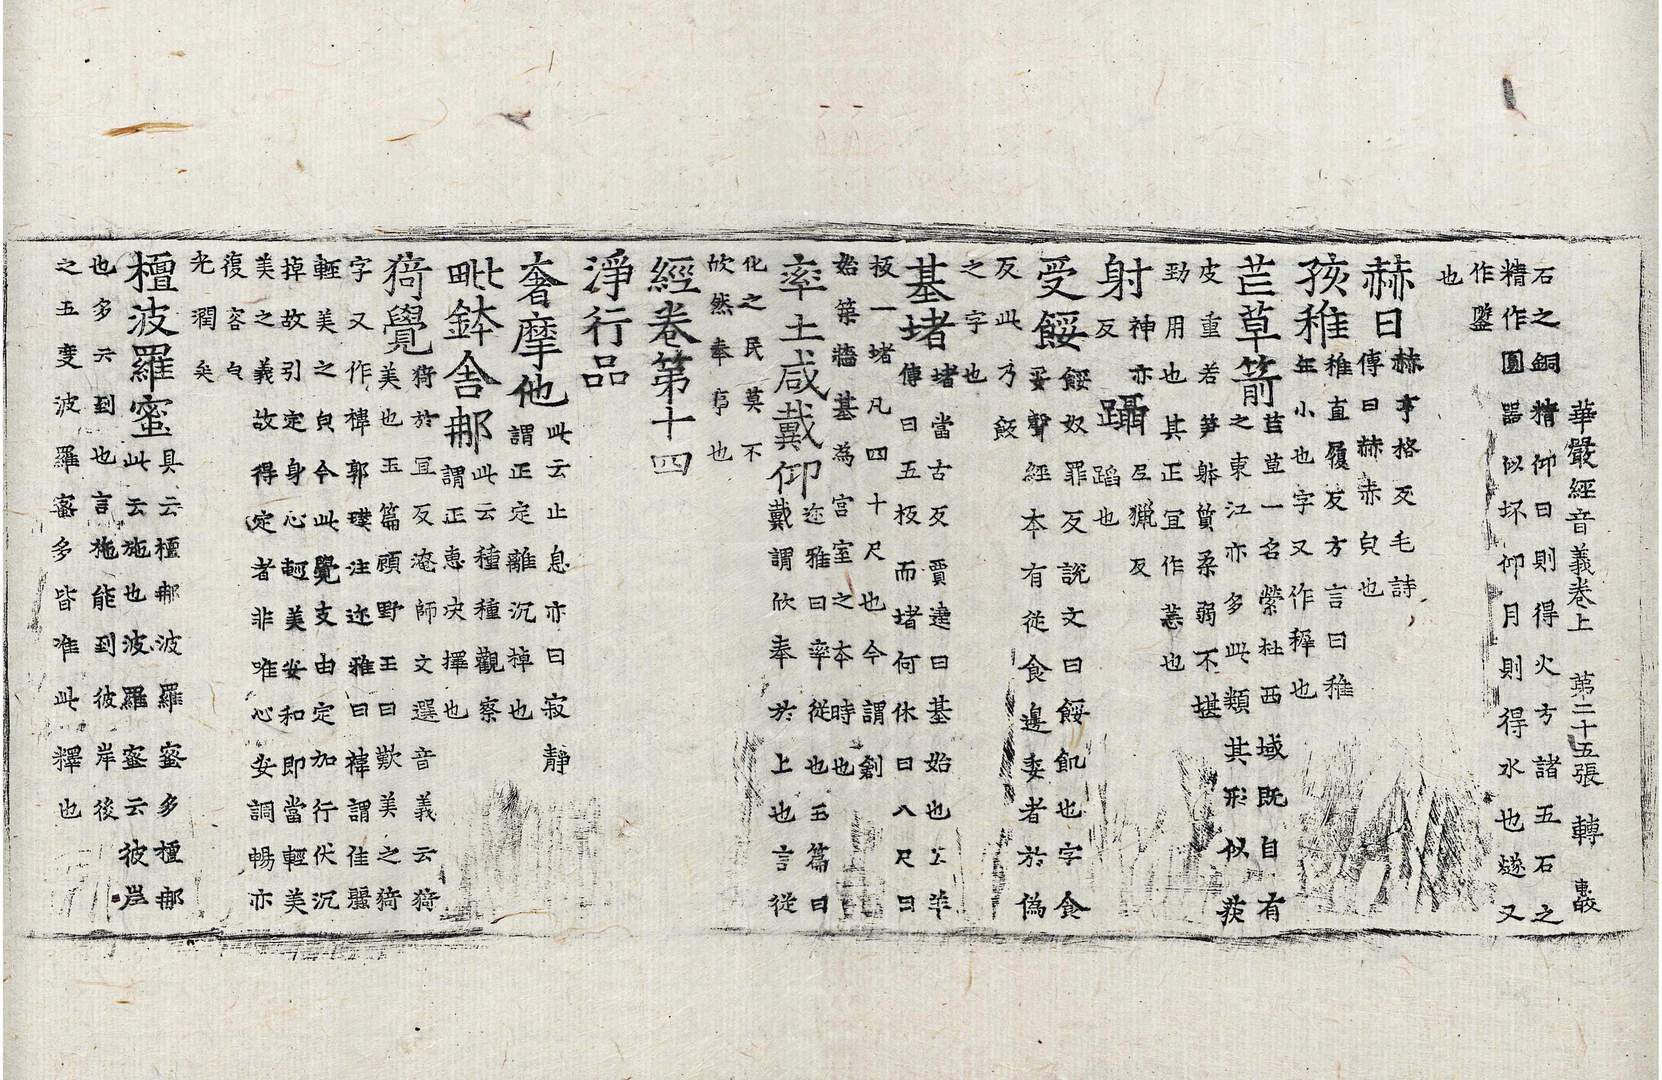 華嚴經音義卷上　第二十五張　轉
石之銅精仰日則得火方諸五石之
精作圓器似坏仰月則得水也燧又
作鐆
也
赫日
赫亨格反毛詩
傳曰赫赤皃也
孩稚
稚直履反方言曰稚
年小也字又作稺也
芒草箭
芒草一名榮杜西域既自有
之東江亦多此類其形似荻
皮重若笋躰質柔弱不堪
勁用也其正冝作䒷也
射
神亦
反
躡
𤣥獵反
蹈也
受餒
餒奴罪反說文曰餒飢也字食
妥聲經本有從食邊委者於偽
反此乃餧
之字也
基堵
堵當古反賈逵曰基始也公羊
傳曰五板而堵何休曰八尺曰
板一堵凡四十尺也今謂創
始築牆基為宮室之本時也
率土咸戴仰
迩雅曰率從也玉篇曰
戴謂欣奉於上也言從
化之民莫不
欣然奉事也
經卷第十四
淨行品
奢摩他
此云止息亦曰寂靜
謂正定離沉掉也
毗鉢舍那
此云種種觀察
謂正惠決擇也
猗覺
猗於冝反淹師文選音義云猗
美也玉篇頋野王曰歎美之猗
字又作禕郭璞注迩雅曰禕謂佳麗
輕美之皃今此覺支由定加行伏沉
掉故引定身心輕美安和即當輕美
美之義故得定者非唯心安調暢亦
復容皃
光潤矣
檀波羅蜜
具云檀那波羅蜜多檀那
此云施也波羅蜜云彼岸
也多云到也言施能到彼岸後
之五度波羅蜜多皆准此釋也